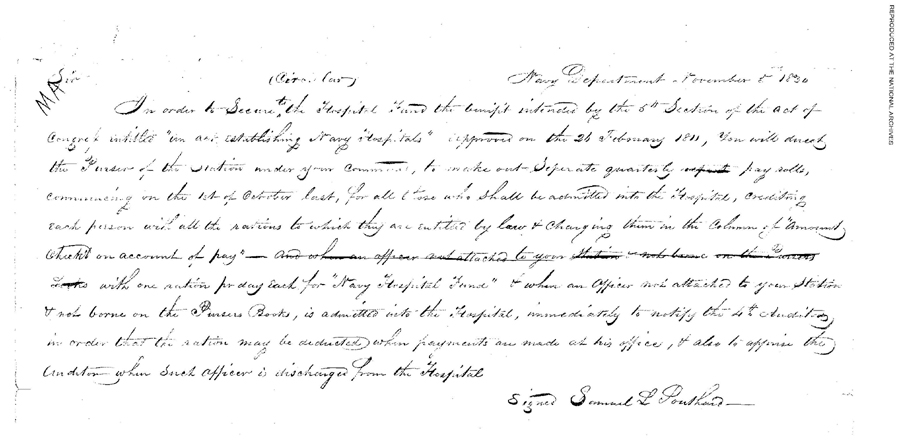 Sir (Circular) Navy Department November 5th 1830
MA
In order to Secure to the Hospital Fund the benefit intended by the 5th Section of the act of
Congress intitled "an act establishing Navy Hospitals" approved on the 26 February 1811, You will direct
the Purser of the Station under your command, to make out Seperate quarterly pay rolls,
commencing on the 1st of October last, for all those who shall be admitted into the Hospital, crediting
each person with all the rations to which they are entitled by law & Charging them in the Column of "Amount
Check'd on account of pay" — And when an officer not attached to your Station & not borne on the Pursers
Books with one ration pr day Each for "Navy Hospital Fund" & when an Officer not attached to your Station
& not borne on the Pursers Books, is admitted into the Hospital, immediately to notify the 4th Auditor,
in order that the ration may be deducted when payments are made at his office, & also to apprise the
Auditor when Such officer is discharged from the Hospital
Signed Samuel L Southard —
REPRODUCED AT THE NATIONAL ARCHIVES